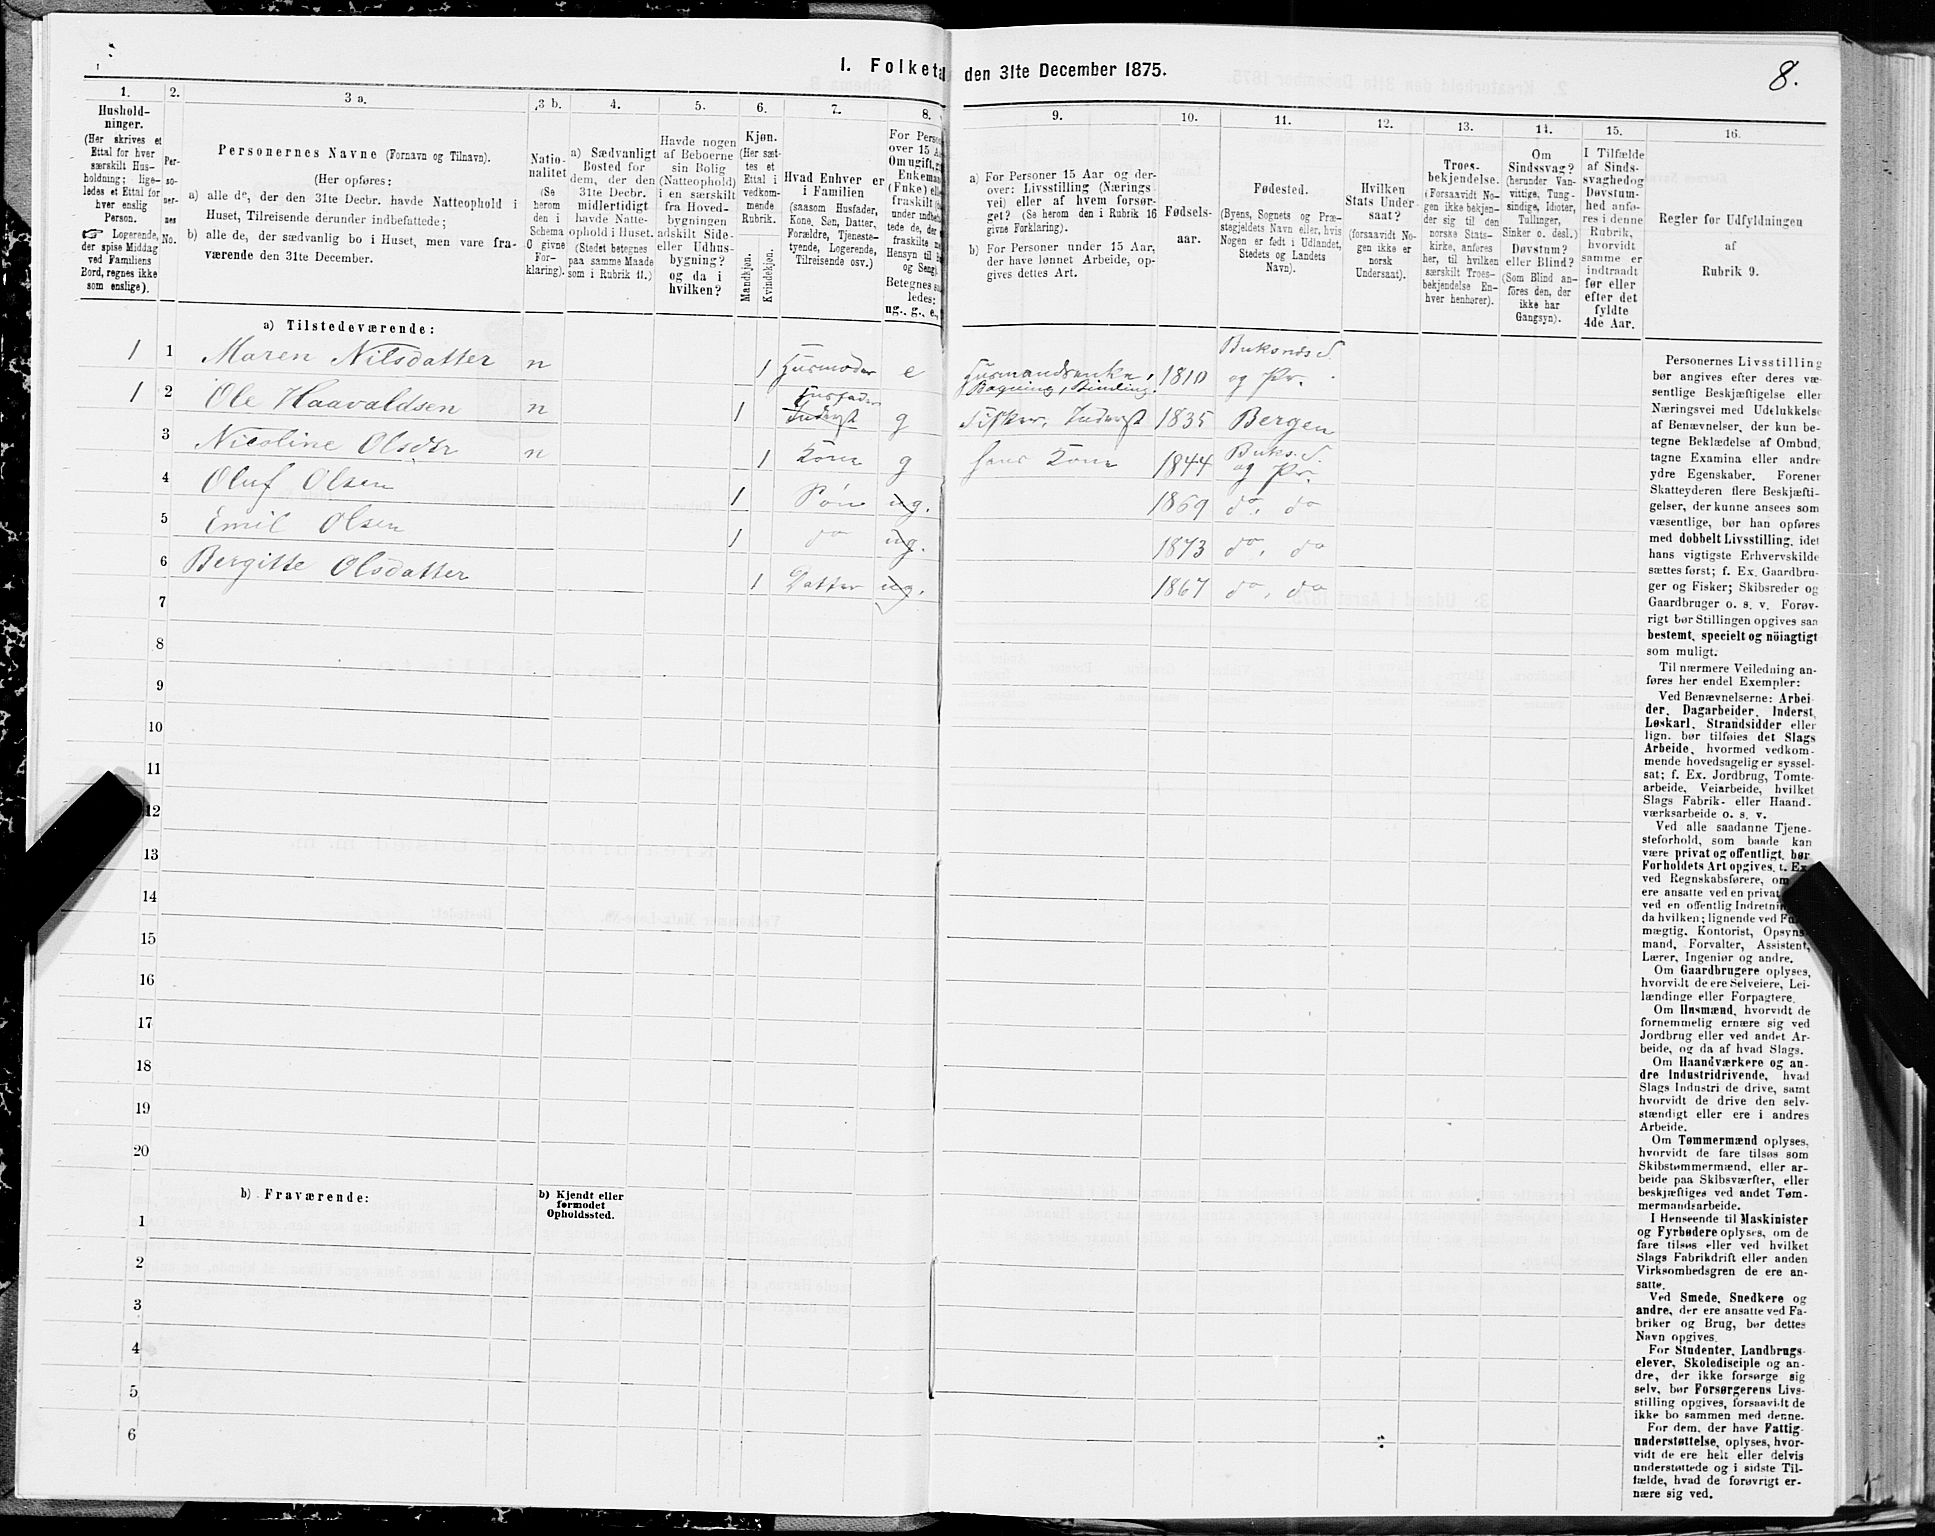 I. Folketal den 31te December 1875.
8.
1.
Hushold-
ninger.
(Her skrives et
Ettal for hver
særskilt Hus-
holdning; lige-
ledes et Ettal for
hver enslig
Person.
☞ Logerende,
der spise Middag
ved Familiens
Bord, regnes ikke
som enslige).
2.
Per-
so-
ner-
nes
No.
3 a.
Personernes Navne (Fornavn og Tilnavn).
(Her opføres:
a) alle de, der den 31te Decbr. havde Natteophold i
Huset, Tilreisende derunder indbefattede;
b) alle de, der sædvanlig bo i Huset, men vare fra-
værende den 31te December.
3 b.
Natio-
nalitet
(Se
herom
den i
Schema
O givne
For-
klaring).
4.
a) Sædvanligt
Bosted for
dem, der den
31te Decbr.
midlertidigt
havde Natte-
ophold i Huset.
(Stedet betegnes
paa samme Maade
som i Rubrik 11.)
5.
Havde nogen
af Beboerne
sin Bolig
(Natteophold)
i en særskilt
fra Hoved-
bygningen
adskilt Side-
eller Udhus-
bygning?
og da i
hvilken?
6.
Kjøn.
(Her sæt-
tes et
Ettal i
vedkom-
mende
Rubrik.
Mandkjøn.
Kvindekjøn.
7.
Hvad Enhver er
i Familien
(saasom Husfader,
Kone, Søn, Datter,
Forældre, Tjeneste-
tyende, Logerende,
Tilreisende osv.)
8.
For Pers
over 15 A
Om ugift, g
Enkeman
(Fnke) ell
fraskilt
under indb
tede de, de
fraskilte
Hensyn til
og Seng).
Betegnes s
ledes:
ug., g., e.,
9.
a) For Personer 15 Aar og der-
over: Livsstilling (Nærings
vei) eller af hvem forsør-
get? (Se herom den i Rubrik 16
givne Forklaring).
b) For Personer under 15 Aar,
der have lønnet Arbeide, op-
gives dettes Art.
10.
Fødsels-
aar.
11.
Fødested.
(Byens, Sognets og Præ-
stegjeldets Navn eller, hvis
Nogen er født i Udlandet,
Stedets og Landets
Navn).
12.
Hvilken
Stats Under
saat?
(forsaavidt No-
gen ikke er
norsk
Undersaat).
13.
Troes-
bekjendelse.
(Forsaavidt No-
gen ikke bekjen-
der sig til den
norske Stats-
kirke, anføres
her, til hvilken
særskilt Troes-
bekjendelse En-
hver henhører).
14.
Om
Sindssvag?
(herunder Van-
vittige, Tung-
sindige, Idioter,
Tullinger,
Sinker o. desl.)
Døvstum?
eller Blind?
(Som Blind an-
føres den, der
ikke har
Gangsyn).
15.
I Tilfælde
af Sinds-
svaghed og
Døvstum-
hed anfø-
res i denne
Rubrik,
hvorvidt
samme er
indtraadt
før eller
efter det
fyldte
4de Aar.
16.
Regler for Udfyldningen
af
Rubrik 9.
a) Tilstedeværende:
1 1 Maren Nilsdatter n 1 Husmoder e Husmandsenke, Bagning, Binding. 1810 Buksnæs S. og Pr.
1 2 Ole Haavaldsen n 1 Husfader Inderst g Fisker, Inderst 1835 Bergen
3 Nicoline Olsdtr n 1 Kone g hans Kone 1844 Buks. S. og Pr.
4 Oluf Olsen 1 Søn ug. 1869 do, do
5 Emil Olsen 1 do ug. 1873 do, do
6 Bergitte Olsdatter 1 Datter ug. 1867 do, do
7
8
9
10
11
12
13
14
15
16
17
18
19
20
b) Fraværende:
b) Kjendt eller
formodet
Opholdssted.
1
2
3
4
5
6
Personernes Livsstilling
bør angives efter deres væ-
sentlige Beskjæftigelse eller
Næringsvei med Udelukkelse
af Benævnelser, der kun be-
tegne Beklædelse af Ombud,
tagne Examina eller andre
ydre Egenskaber. Forener
Skatteyderen flere Beskjæfti-
gelser, der kunne ansees som
væsentlige, bør han opføres
med dobbelt Livsstilling, idet
hans vigtigste Erhvervskilde
sættes først; f. Ex. Gaardbru-
ger og Fisker; Skibsreder og
Gaardbruger o. s. v. Forøv-
rigt bør Stillingen opgives saa
bestemt, specielt og nöiagtigt
som muligt.
Til nærmere Veiledning an-
føres her endel Exempler:
Ved Benævnelserne: Arbei-
der, Dagarbeider, Inderst,
Løskarl, Strandsidder eller
lign. bør tilføies det Slags
Arbeide, hvormed vedkom-
mende hovedsagelig er syssel-
sat; f. Ex. Jordbrug, Tomte-
arbeide, Veiarbeide, hvilket
Slags Fabrik- eller Haand-
værksarbeide o. s. v.
Ved alle saadanne Tjene-
steforhold, som baade kan
være privat og offentligt, bør
Forholdets Art opgives, t. Ex.
ved Regnskabsførere, om
ere ansatte ved en privat
ved en offentlig Indretnin
da hvilken; lignende ved Fu
mægtig, Kontorist, Opsyns
mand, Forvalter, Assistent,
Lærer, Ingeniør og andre.
Om Gaardbrugere oplyses,
hvorvidt de ere Selveiere, Lei-
lændinge eller Forpagtere.
Om Husmænd, hvorvidt de
fornemmelig ernære sig ved
Jordbrug eller ved andet Ar-
beide, og da af hvad Slags.
Om Haandværkere og an-
dre Industridrivende, hvad
Slags Industri de drive, samt
hvorvidt de drive den selv-
stændigt eller ere i andres
Arbeide.
Om Tømmermænd oplyses,
hvorvidt de fare tilsøs som
Skibstømmermænd, eller ar-
beide paa Skibsværfter, eller
beskjæftiges ved andet Tøm-
mermandsarbeide.
I Henseende til Maskinister
og Fyrbødere oplyses, om de
fare tilsøs eller ved hvilket
Slags Fabrikdrift eller anden
Virksomhedsgren de ere an-
satte.
Ved Smede, Snedkere og
andre, der ere ansatte ved Fa-
briker og Brug, bør dettes
Navn opgives.
For Studenter, Landbrugs-
elever, Skoledisciple og an-
dre, der ikke forsørge sig
selv, bør Forsørgerens Livs-
stilling opgives, forsaavidt de
ikke bo sammen med denne.
For dem, der have Fattig-
understøttelse, oplyses, hvor-
vidt de ere helt eller delvis
understøttede og i sidste Til-
fælde, hvad de forøvrigt er-
nære sig ved.